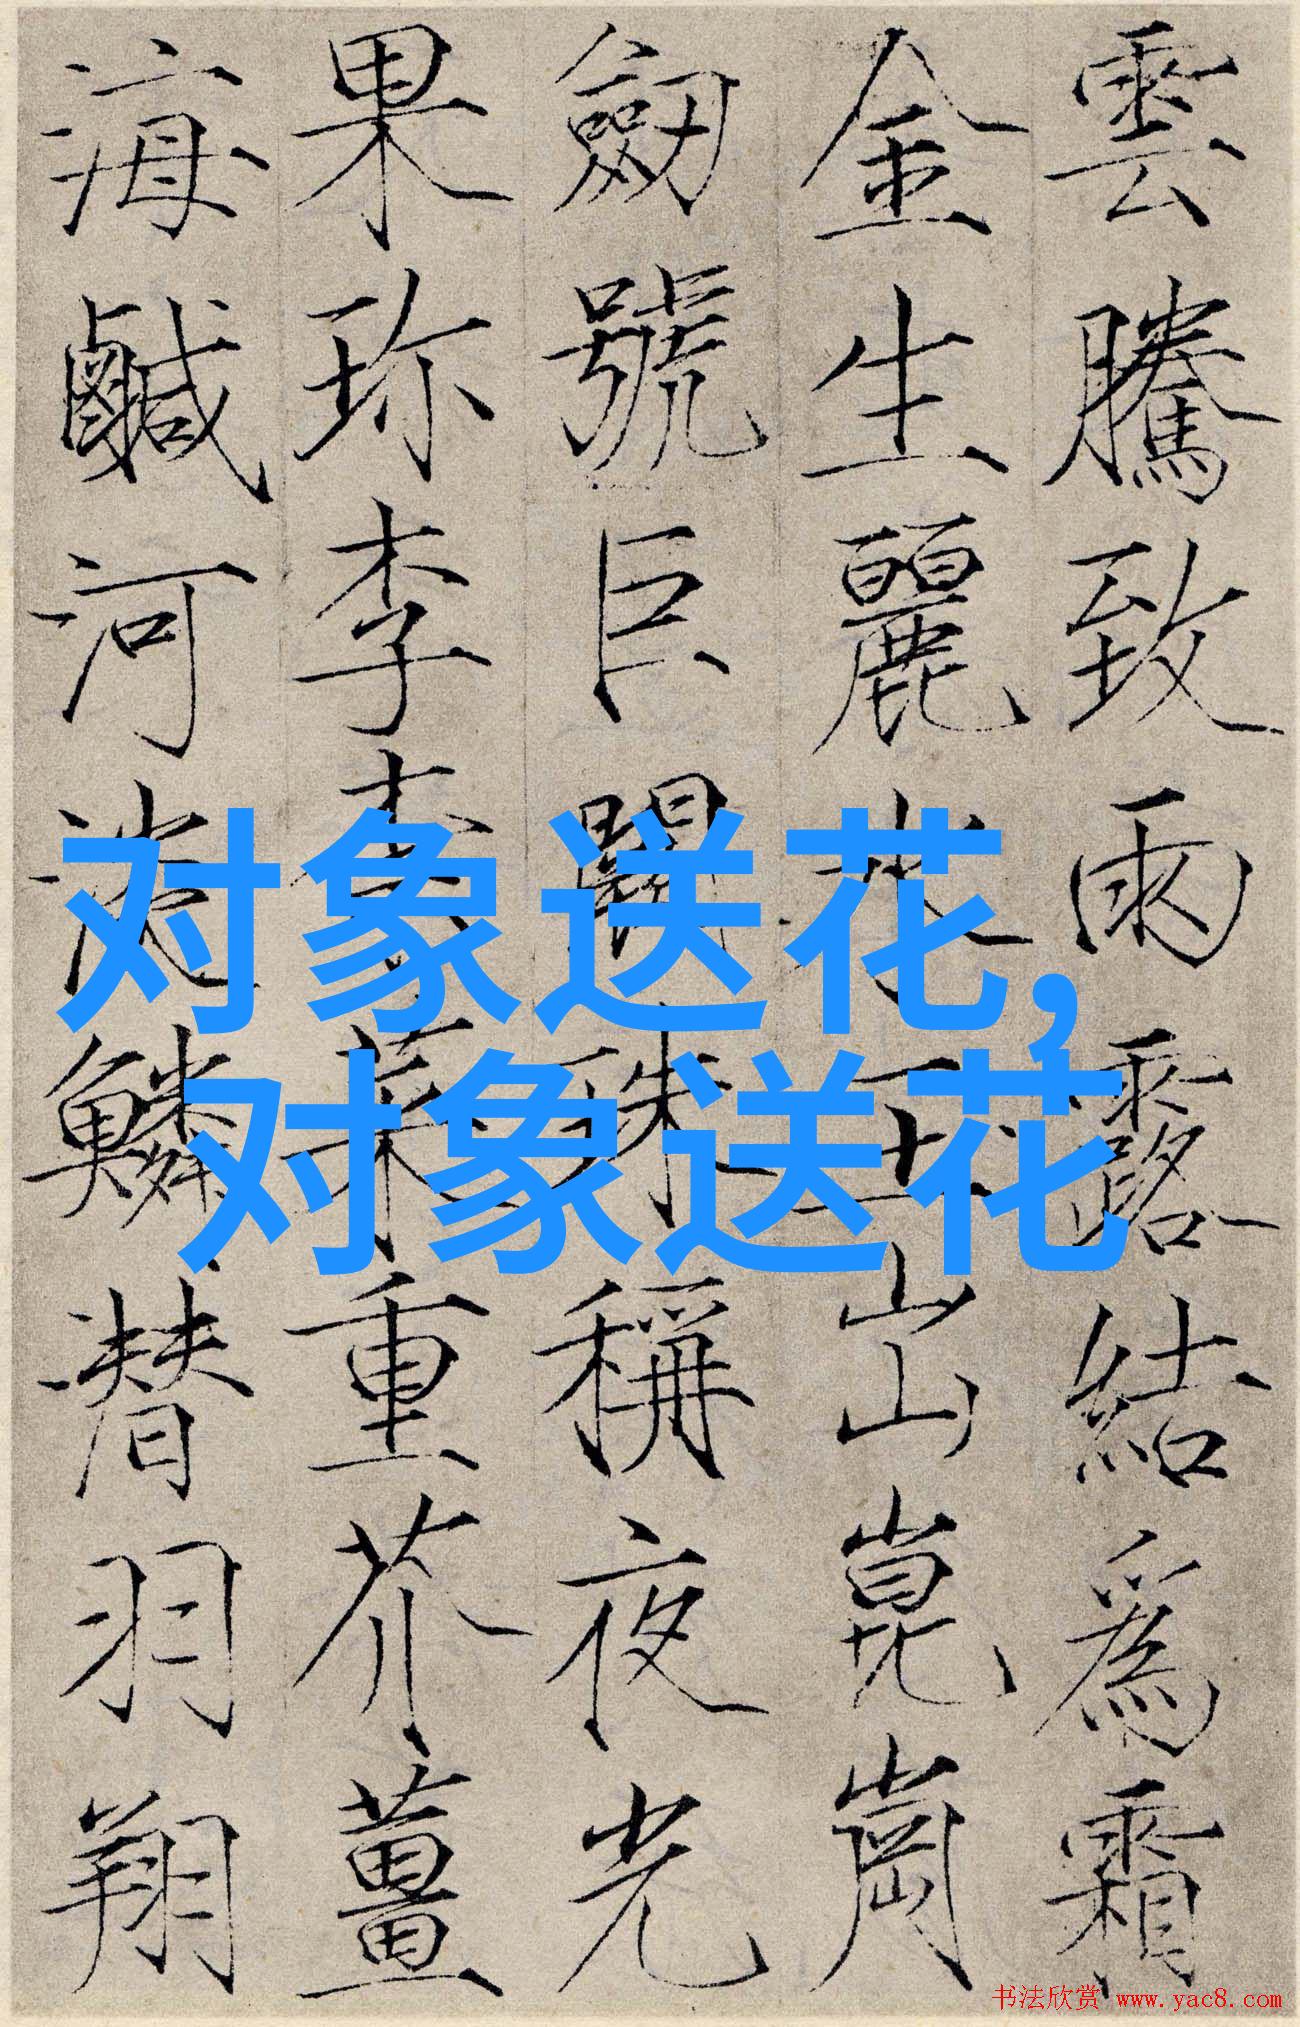 雲騰致雨露結爲霜
金生麗水玉出崑崗
劒號巨闕珠稱夜光
果珍李柰菜重芥薑
海鹹河淡鱗潜羽翔
对象送花,
对象送花
书法欣赏 www.yac8.com